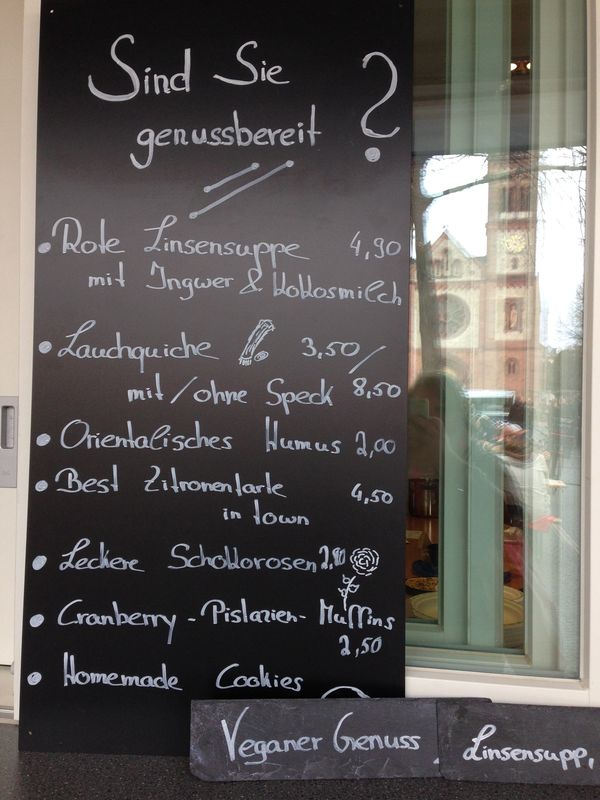 Sind Sie
genussbereit ?
• Rote Linsensuppe 4,90
mit Ingwer & Kokosmilch
• Lauchquiche 3,50/
mit/ohne Speck 8,50
• Orientalisches Humus 2,00
• Best Zitronentarte 4,50
in town
• Leckere Schokorosen
• Cranberry-Pistazien-Muffins
2,50
• Homemade Cookies
Veganer Genuss
Linsensupp,